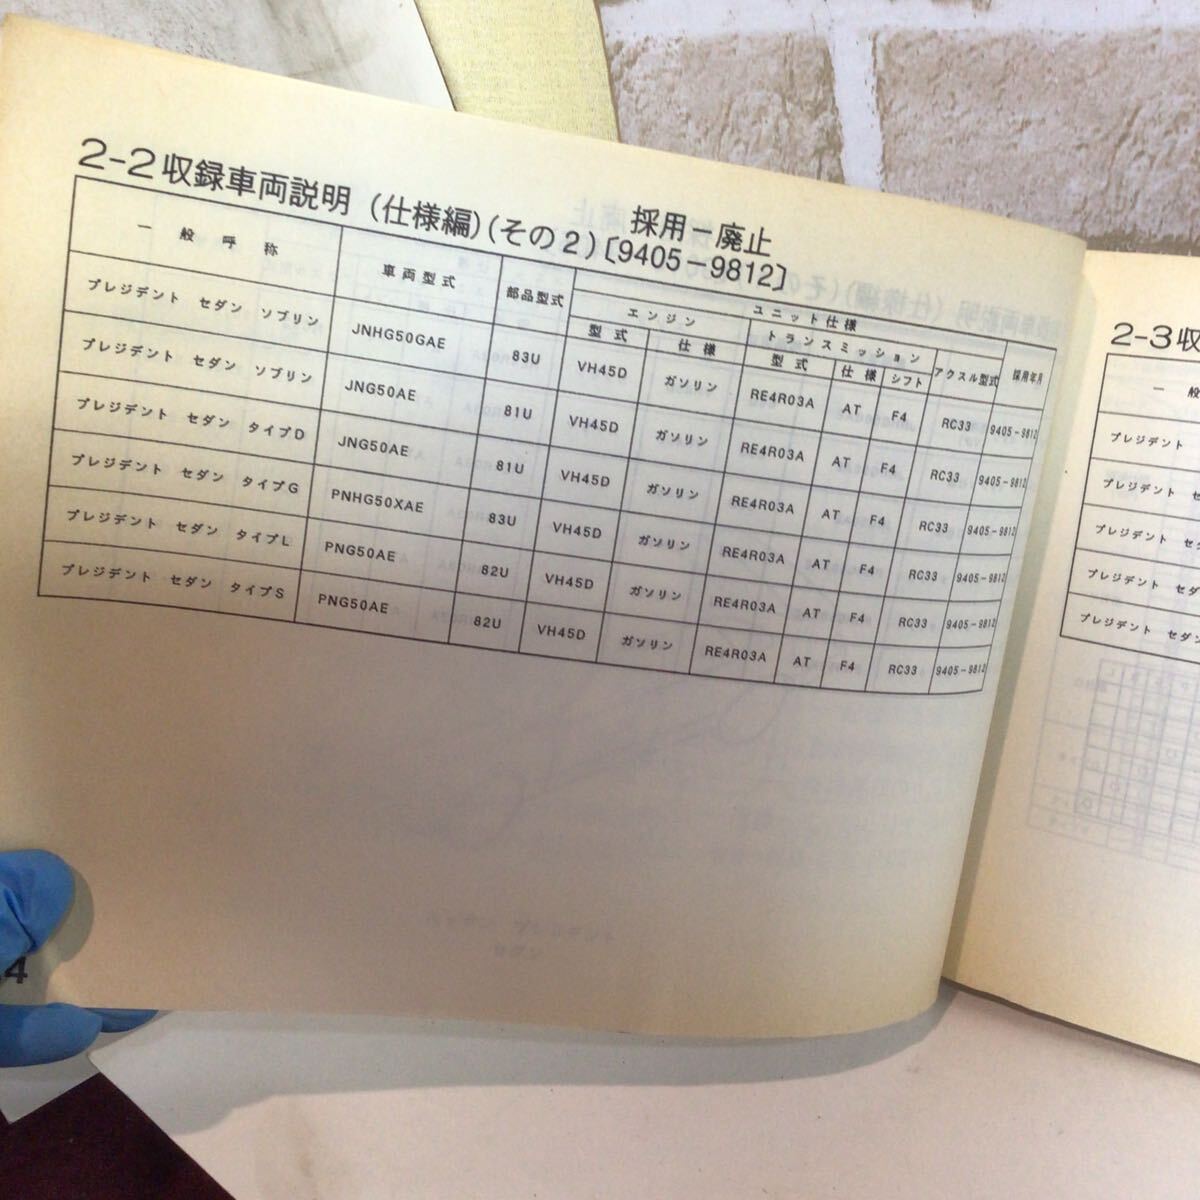 2-2収録車両説明(仕様編)(その2) 採用-廃止〔9405-9812〕
一般呼称 車両型式 部品型式 ユニット仕様 採用年月
エンジン トランスミッション アクスル型式
型式 仕様 型式 仕様 シフト
プレジデント セダン ソブリン JNHG50GAE 83U VH45D ガソリン RE4R03A AT F4 RC33 9405-9812
プレジデント セダン ソブリン JNG50AE 81U VH45D ガソリン RE4R03A AT F4 RC33 9405-9812
プレジデント セダン タイプD JNG50AE 81U VH45D ガソリン RE4R03A AT F4 RC33 9405-9812
プレジデント セダン タイプG PNHG50XAE 83U VH45D ガソリン RE4R03A AT F4 RC33 9405-9812
プレジデント セダン タイプL PNG50AE 82U VH45D ガソリン RE4R03A AT F4 RC33 9405-9812
プレジデント セダン タイプS PNG50AE 82U VH45D ガソリン RE4R03A AT F4 RC33 9405-9812
4
2-3収
一般
プレジデント
プレジデント セ
プレジデント セ
プレジデント セダ
プレジデント セダ